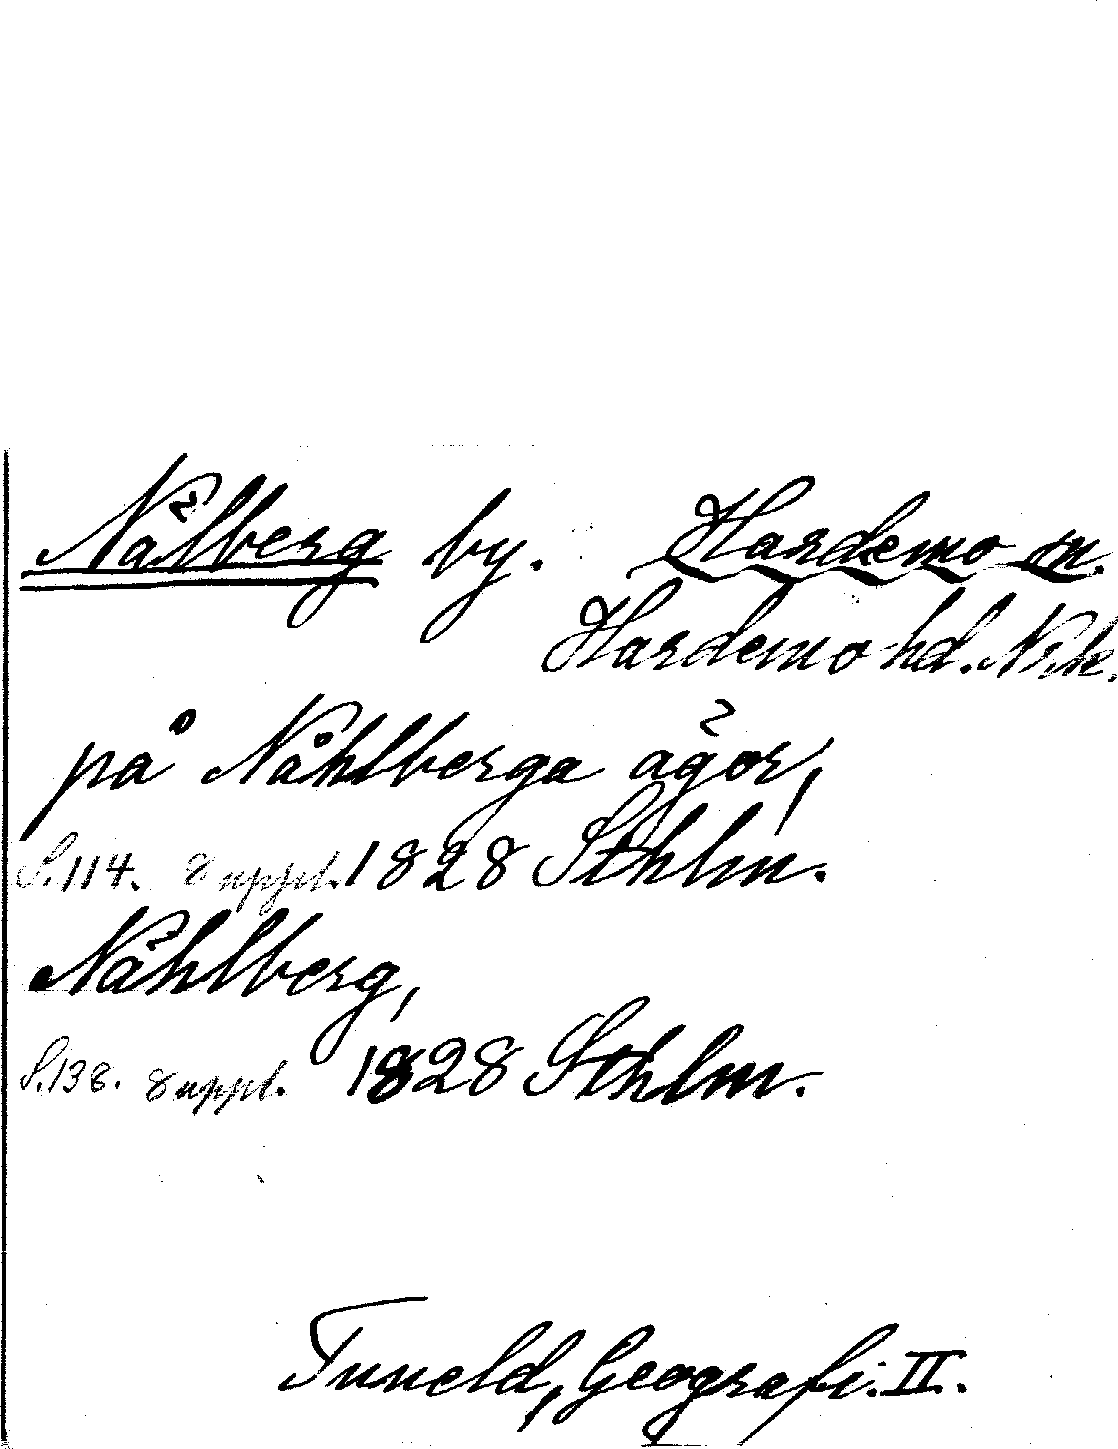 Nålberg by. Hardemo sn.
Hardemo hd. Nrk.
på Nåhlberga ägor,
S. 114. Suppl. 1828 Sthlm.
Nåhlberg,
S. 138. Suppl. 1828 Sthlm.
Tuneld, Geografi. II.